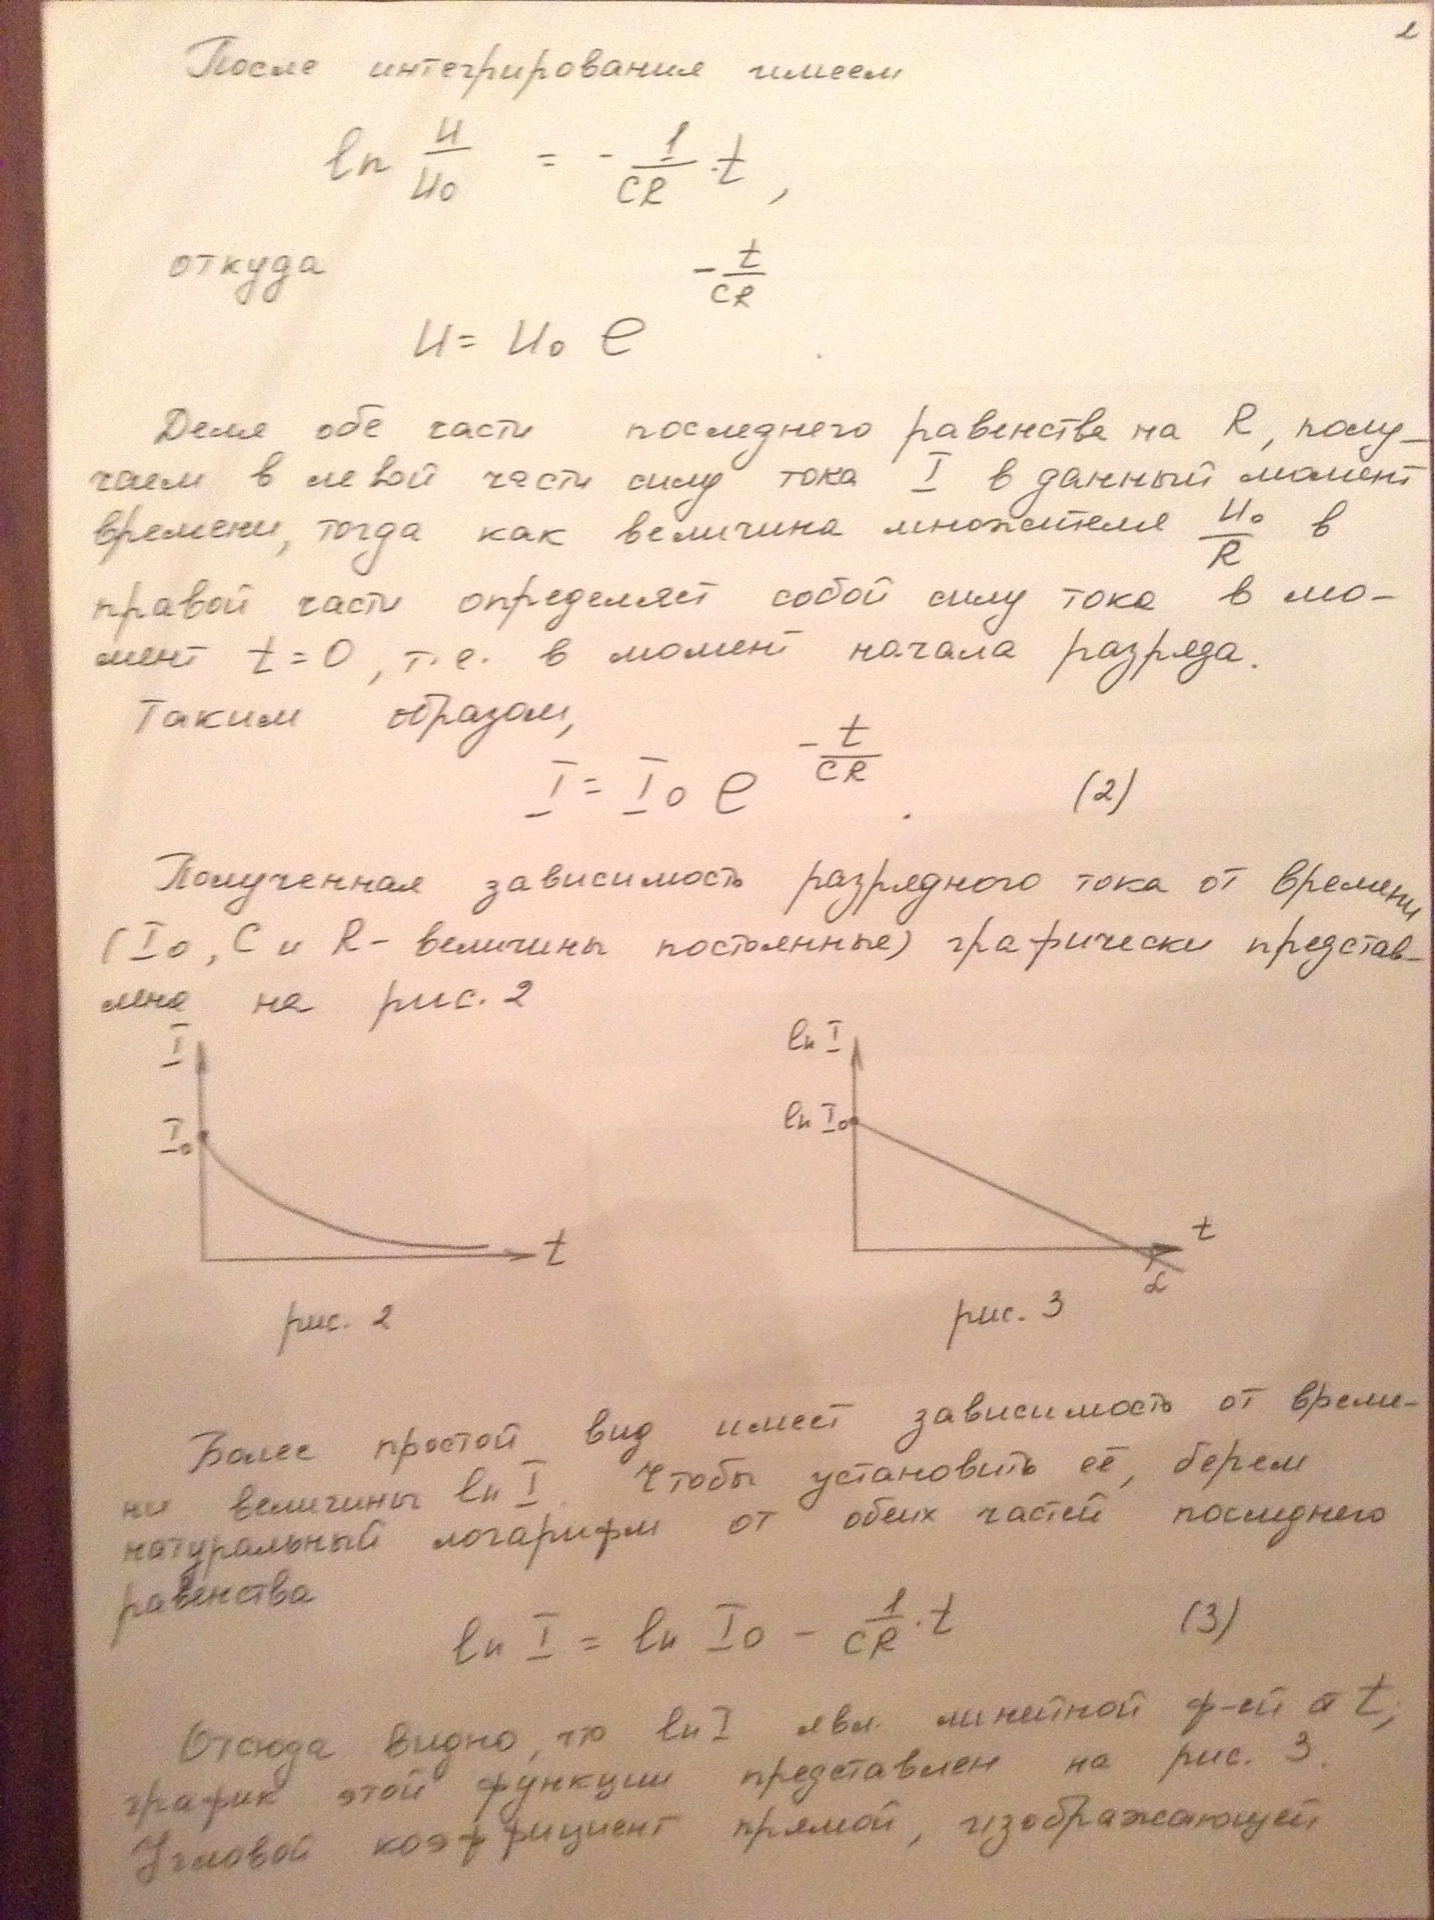 2
После интегрирования имеем
ln U/U₀ = - 1/CR · t ,
откуда
U = U₀ e^(-t/CR) .
Деля обе части последнего равенства на R, полу-
чаем в левой части силу тока I в данный момент
времени, тогда как величина множителя U₀/R в
правой части определяет собой силу тока в мо-
мент t = 0, т.е. в момент начала разряда.
Таким образом,
I = I₀ e^(-t/CR) . (2)
Полученная зависимость разрядного тока от времени
(I₀, C и R - величины постоянные) графически представ-
лена на рис. 2
I
I₀
t
рис. 2
ln I
ln I₀
t
α
рис. 3
Более простой вид имеет зависимость от време-
ни величины ln I. Чтобы установить её, берем
натуральный логарифм от обеих частей последнего
равенства
ln I = ln I₀ - 1/CR · t (3)
Отсюда видно, что ln I явл. линейной ф-ей от t;
график этой функции представлен на рис. 3.
Угловой коэффициент прямой, изображающей